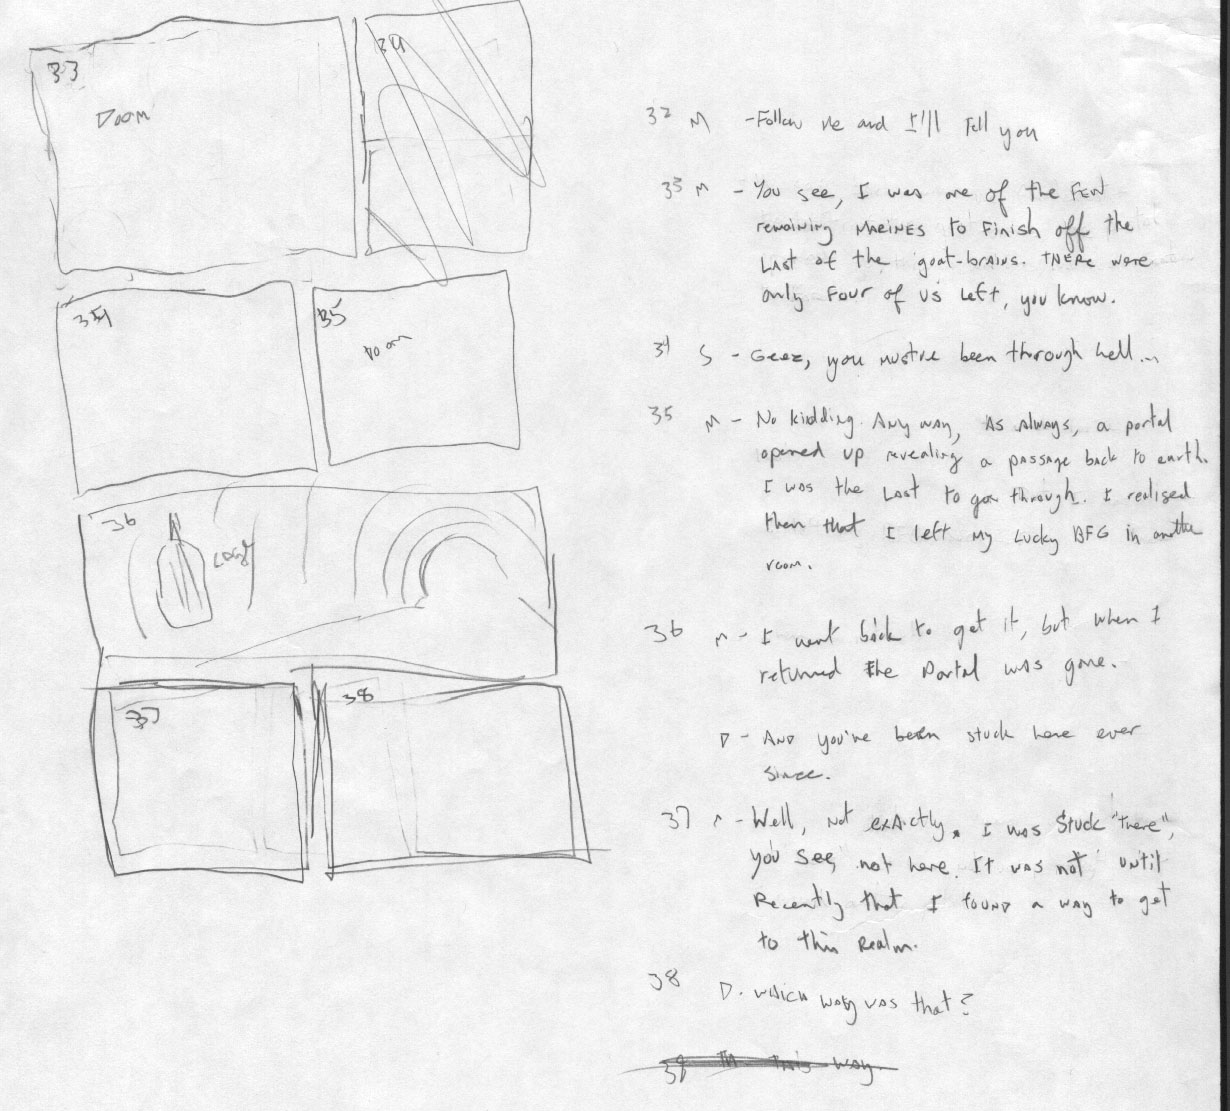 33
34
DOOM
34
35
DOOM
36
37
38
32 M - Follow me and I'll Tell you
33 M - You see, I was one of the FEW
remaining MARINES to Finish off the
LAST of the goat-brains. THERE were
only Four of us Left, you know.
34 S - Geez, you must've been through hell...
35 M - No kidding. Any way, As Always, a portal
opened up revealing a passage back to earth.
I was the Last to go through. I realised
then that I left my Lucky BFG in another
room.
36 M - I went back to get it, but when I
returned the Portal was gone.
D - AND you've been stuck here ever
since.
37 M - Well, not exactly, I was Stuck "there",
you see, not here. It was not until
Recently that I found a way to get
to this Realm.
38 D - which way was that?
38 This way